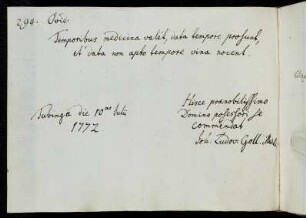 294. Ovid.
Temporibus medicina valet, data tempore prosunt,
et data non apto tempore vina nocent.
Tubingæ die 10mo Julii
1772
Hisce prænobilissimo
Domino possessori se
commendat
Joh. Ludov. Gottl.